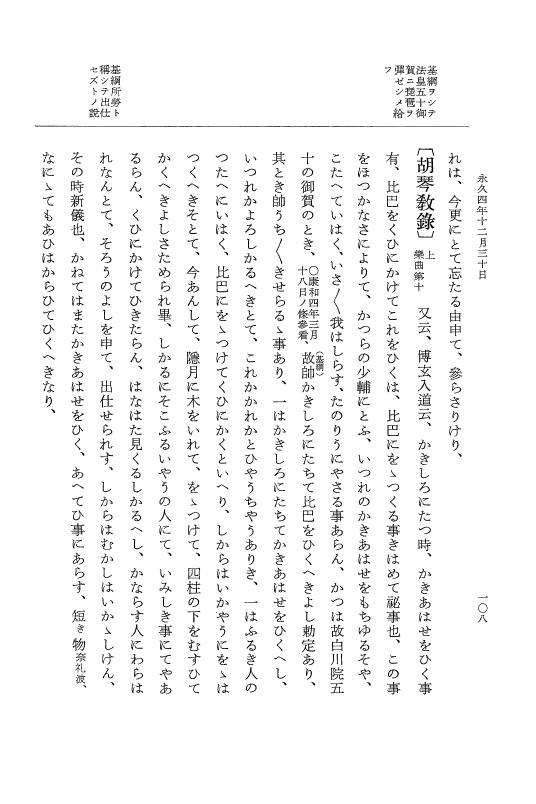 永久四年十二月三十日
一〇八
基綱ヲシテ
法皇五十御
賀ニ琵琶ヲ
彈ゼシメ給
フ
基綱所勞ト
稱シテ出仕
セズトノ說
れは、今更にとて忘たる由申て、參らさりけり、
〔胡琴敎錄〕上樂曲第十 又云、博玄入道云、かきしろにたつ時、かきあはせをひく事
有、比巴をくひにかけてこれをひくは、比巴にをゝつくる事きはめて祕事也、この事
をほつかなさによりて、かつらの少輔にとふ、いつれのかきあはせをもちゆるそや、
こたへていはく、いさ〱我はしらす、たのりうにやさる事あらん、かつは故白川院五
十の御賀のとき、〇康和四年三月十八日ノ條參看、故帥（基綱）かきしろにたちて比巴をひくへきよし勅定あり、
其とき帥うち〱きせらるゝ事あり、一はかきしろにたちてかきあはせをひくへし、
いつれかよろしかるへきとて、これかかれかとひやうちやうありき、一はふるき人の
つたへにいはく、比巴にをゝつけてくひにかくといへり、しからはいかやうにをゝは
つくへきそとて、今あんして、隱月に木をいれて、をゝつけて、四柱の下をむすひて
かくへきよしさためられ畢、しかるにそこふるいやうの人にて、いみしき事にてやあ
るらん、くひにかけてひきたらん、はなはた見くるしかるへし、かならす人にわらは
れなんとて、そろうのよしを申て、出仕せられす、しからはむかしはいかゝしけん、
その時新儀也、かねてはまたかきあはせをひく、あへてひ事にあらす、短き物奈礼波、
なにゝてもあひはからひてひくへきなり、